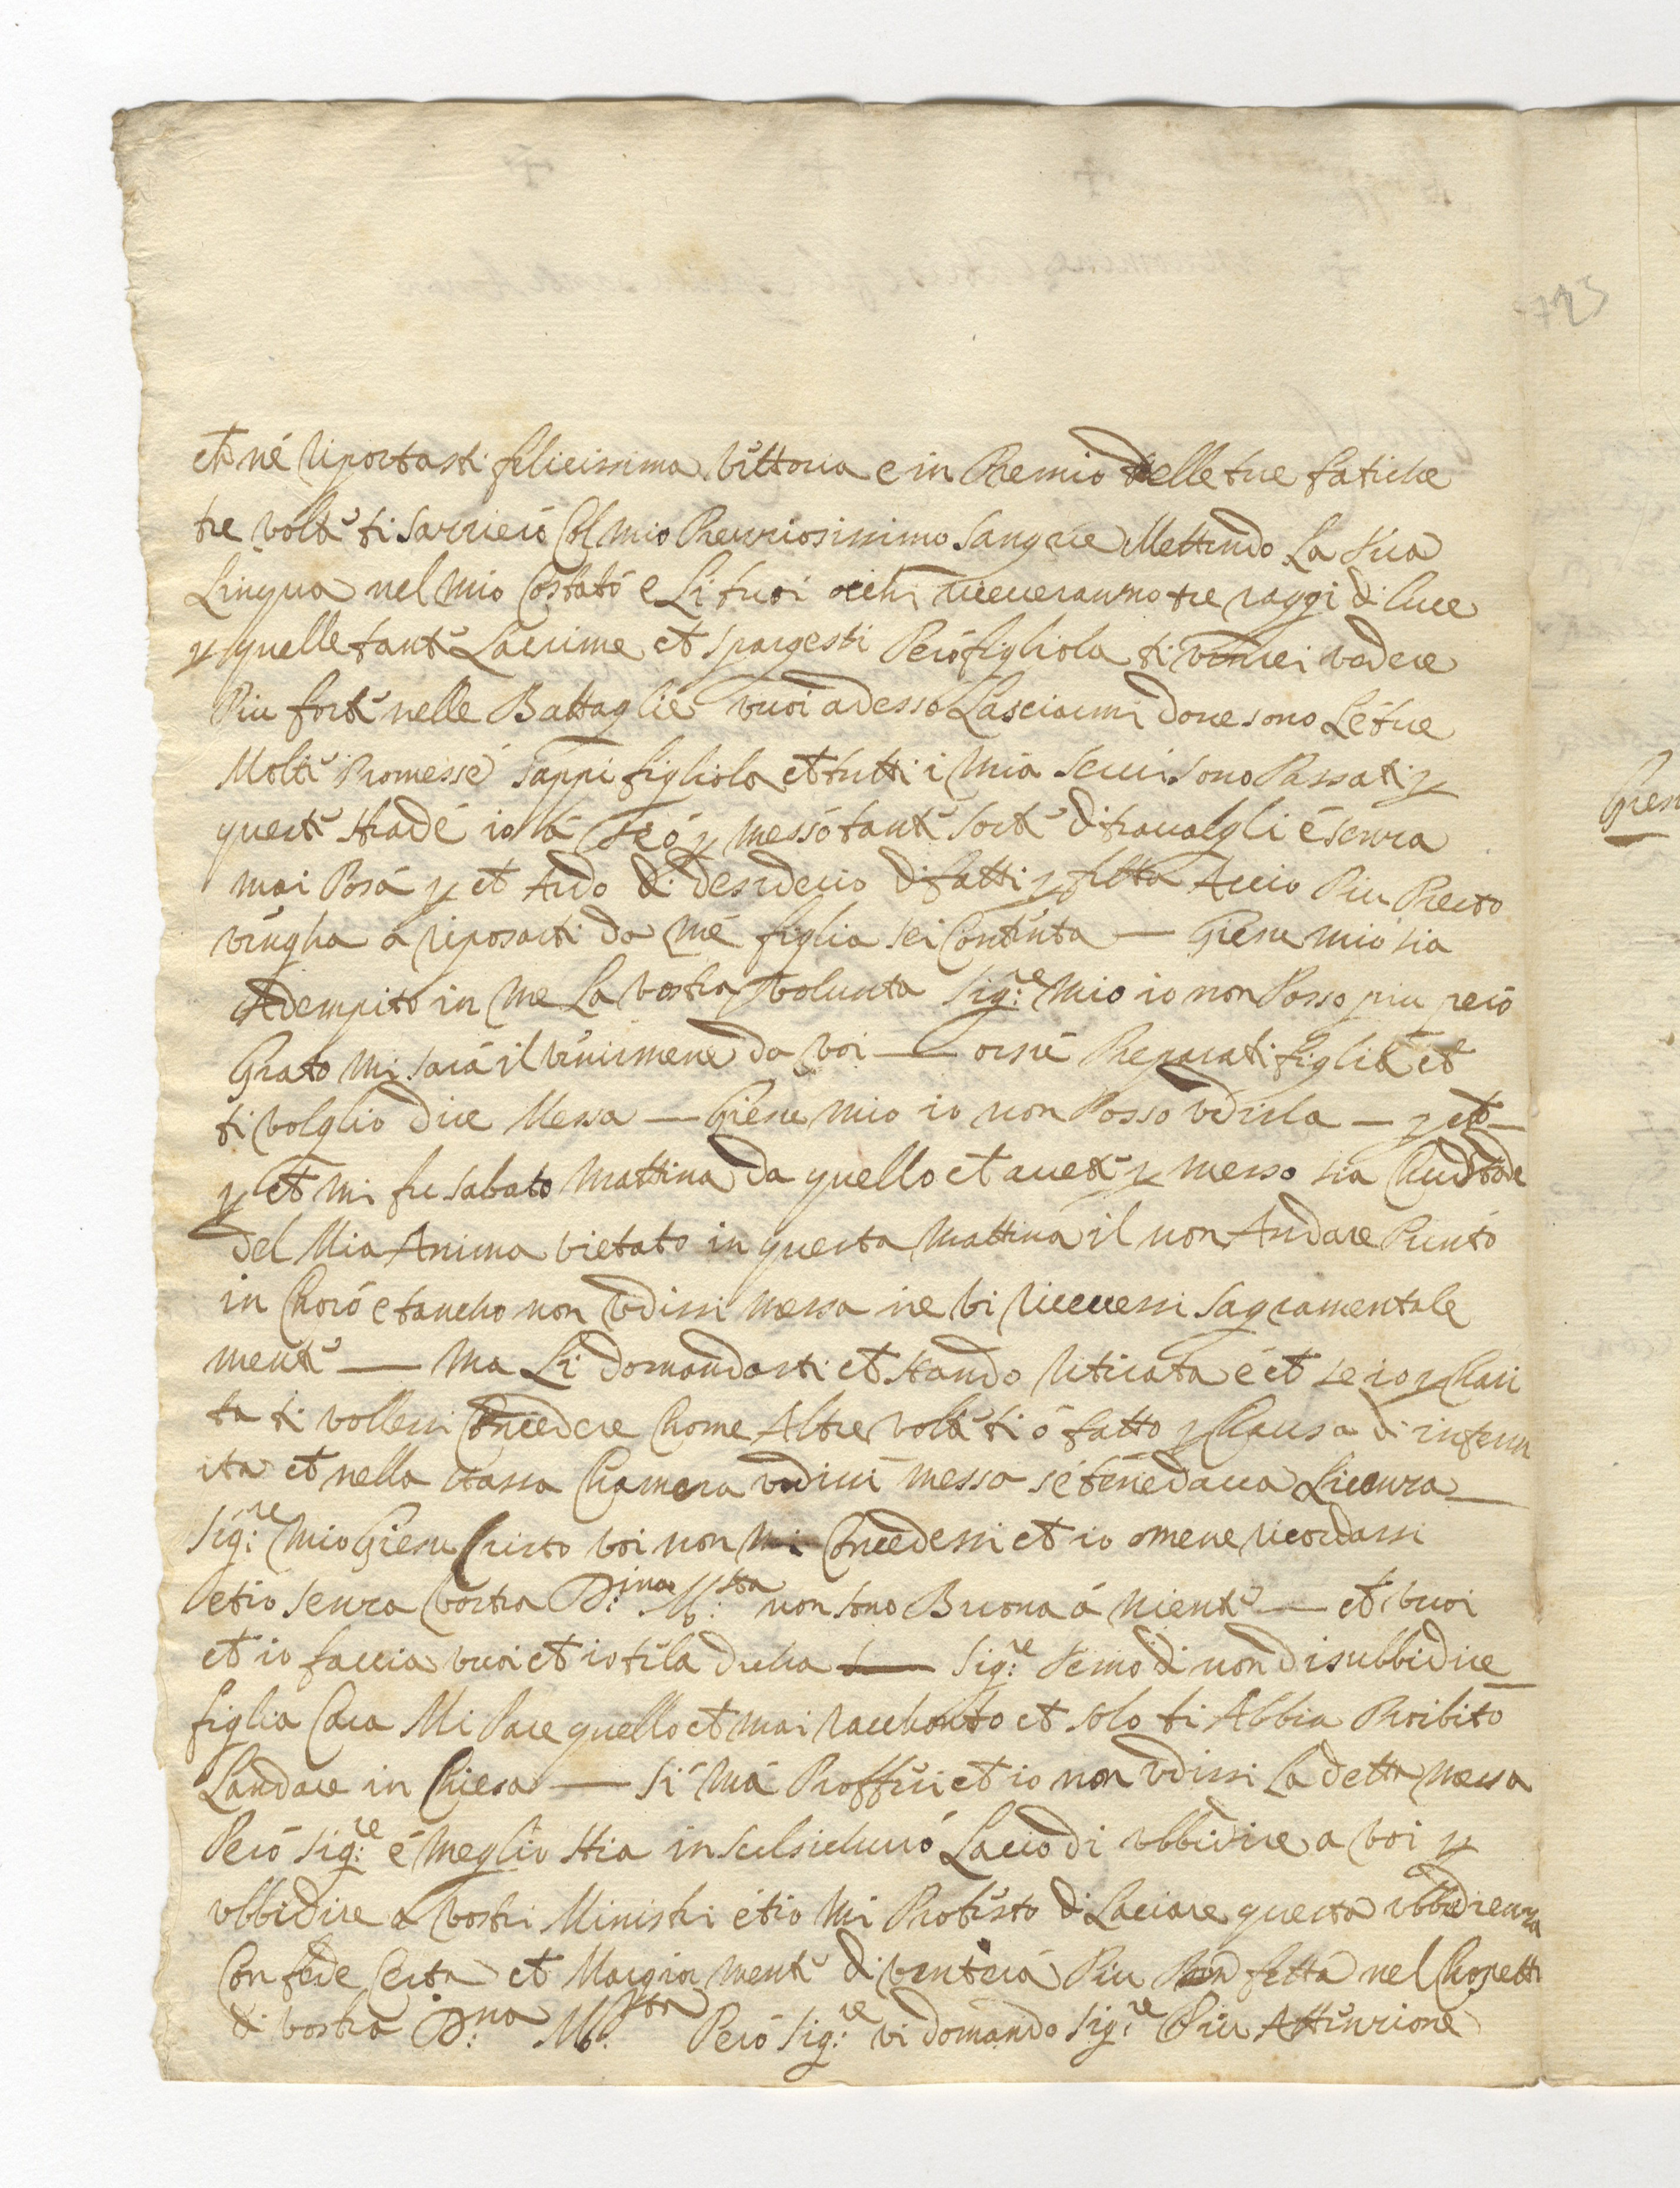 et né riportasti felicissima vittoria e in Premio delle tue fatiche
tre volte ti sarrierò Col mio Pretiosissimo Sangue Mettendo La tua
Lingua nel mio Costató e Li tuoi ochi riceveranno tre raggi di luce
p quelle tante Lacrime et spargesti Però figliola ti vorrei vedere
Piu forte nelle Battaglie vuoi adesso Lasciarmi dove sono Le tue
Molte Promesse Sappi figliola et tutti i Mia Servi sono Passati p
queste strade io tá Te ó p messó tante sorte di travalgli é senza
mai Posá p et Ardo di desiderio di fatti p fetta Accio Piu Presto
vengha a riposarti da me figlia sei Contenta — Giesu mio sia
Adempito in me La vostra volunta Sig:re mio io non Posso piu però
Grato mi sará il venirmene da voi — orsú Preparati figlia et
ti volglio dire Messa — Giesu mio io non Posso vdirla — p et —
p et mi fu sabato mattina da quello et avete p messo sia Chustode
del Mia Anima vietato in questa mattina il non Andare Punto
in Choró e tancho non vdissi messa ne vi ricevessi Sagramentale
mente — Ma Li domandasti et stando ritirata é et se io p Chari
ta ti volessi Concedere Chome Altre volte ti ó fatto p Chausa di inferm
ita et nella stassa Chamera vdivi messa se tene dava Licenza —
Sig:re mio Giesu Cristo voi non mi Concedessi et io omene ricordassi
et io senza vostra D:ina M:sta non sono Buona á niente — et vuoi
et io faccia vuoi et io tila dicha — Sig:re Temo di non disubbidire
figlia Cara Mi Pare quello et mai racchonto et solo ti Abbia Proibito
Landare in Chiesa — Sí má Profferi et io non vdissi La detta messa
Però Sig:re é meglio stia in Laccio di vbbidire a voi p
vbbidire a vostri Ministri etio Mi Protesto di Laciare questa vbbidienza
Con fede Certa et Margior mente di ventera Piu Per fetta nel Chospetti
di vostra D:na M:sta Però Sig:re vi domando Sig:re Piu Attenzione
725
Gies